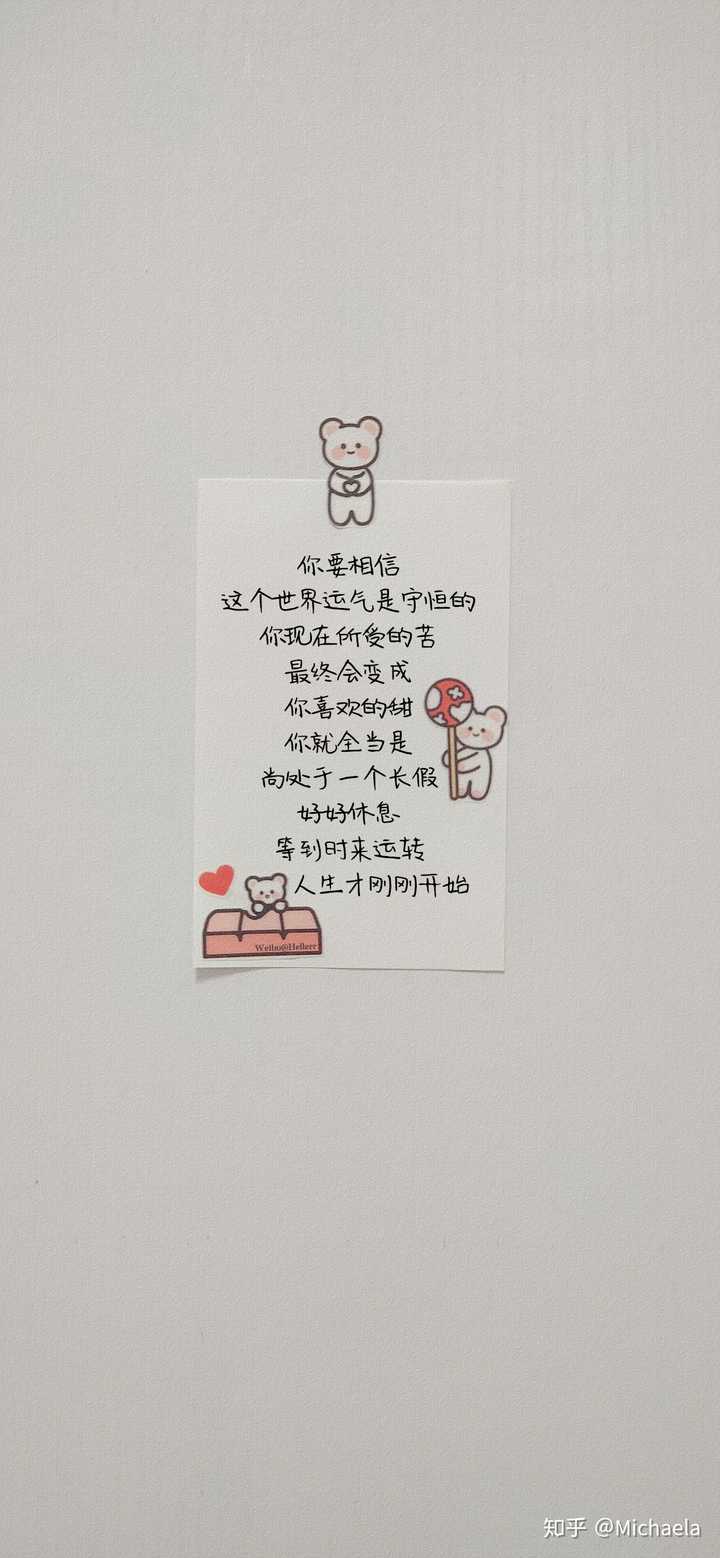 你要相信
这个世界运气是守恒的
你现在所受的苦
最终会变成
你喜欢的甜
你就全当是
尚处于一个长假
好好休息
等到时来运转
人生才刚刚开始
Weibo@Hellerr
知乎 @Michaela